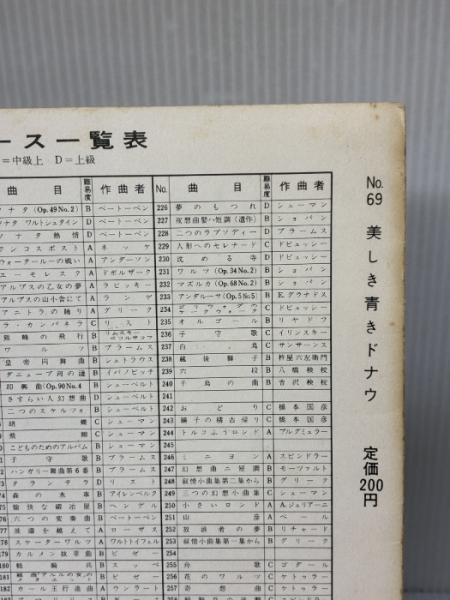 ース一覧表
=中級上 D=上級
曲目 難易度 作曲者 No. 曲目 難易度 作曲者
ナタ(Op.49 No.2) B ベートーベン 226 夢のもつれ D シューマン
ナタ ワルトシュタイン D ベートーベン 227 夜想曲嬰ハ短調(遺作) B ショパン
ソナタ 熱情 D ベートーベン 228 二つのラプソディー D ブラームス
ンコスポスト A ネッケ 229 人形へのセレナード C ドビュッシー
ウォータールーの戦い A アンダーソン 230 沈める寺 D ドビュッシー
ユーモレスク A ドボルザーク 231 ワルツ(Op.34 No.2) B ショパン
アルプスの乙女の夢 A ラビッキー 232 マズルカ(Op.68 No.2) B ショパン
アルプスの山小舎にて A ランゲ 233 アンダルーサ(Op.5 No.5) B E.グラナドス
アニトラの踊り A グリーク C ドビュッシー
ラ・カンパネラ C リスト 235 オルゴール B リヤドフ
熊蜂の飛行 B 236 子守歌 C イリンスキー
ワルツ B ブラームス 237 白鳥 C サンサーンス
皇帝円舞曲 B シュトラウス 238 越後獅子 B 杵屋六左衛門
ダニューブ河の漣 B イバノビッチ 239 六段 B 八橋検校
即興曲(Op.90 No.4 B シューベルト 240 千鳥の曲 B 吉沢検校
さすらい人幻想曲 D シューベルト 241
二つのスケルツォ B シューベルト 242 おどり C 橋本国彦
胡蝶 C シューマン 243 獅子の稽古帰り C 橋本国彦
C シューマン 244 トルコふうロンド A ブルグミュラー
こどものためのアルバム B シューマン 245
子守歌 B ブラームス 246 ミニヨン A スピンドラー
ハンガリー舞曲第6番 B ブラームス 247 幻想曲ニ短調 B モーツァルト
タランテラ D リスト 248 叙情小曲集第二集から B グリーク
森の水車 B アイレンベルク 249 三つの幻想小曲集 C シューマン
175 愉快な鍛冶屋 B ヘンデル 250 小さいロンド A A.ジュリアーニ
176 六つの変奏曲 B ベートーベン 251 山彦 A ベール
177 波濤を越えて A ローザス 252 放浪者の夢 B リチャード
178 スケーターワルツ A ワルトトイフェル 253 叙情小曲集第一集から B グリーク
179 カルメン抜萃曲 B ビゼー 254
180 軽騎兵 B スッペ 255 舟歌 C ゴダール
181 B ビゼー 256 花のワルツ C ケトゥラー
182 カール王行進曲 A ウンラート 257 奇想曲 C ケトゥラー
No.69 美しき青きドナウ 定価200円